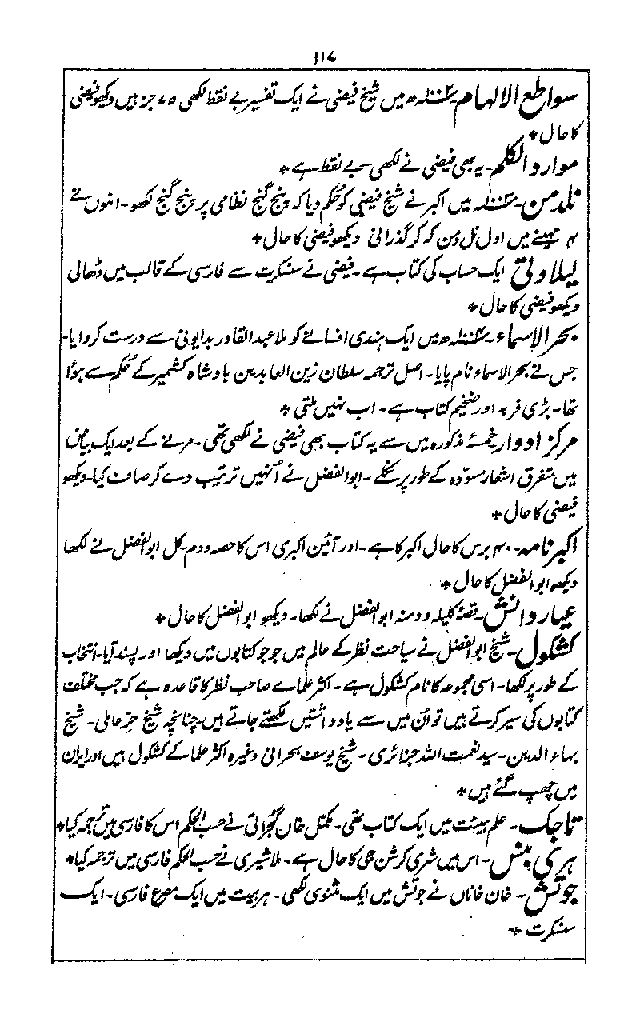 ۱۱۷
سواطع الالہام ۱۰۰۲ھ میں شیخ فیضی نے ایک تفسیر بے نقط لکھی ۷۵ جز ہیں دیکھو فیضی
کا حال *
موارد الکلم۔ یہ بھی فیضی نے لکھی بے نقط ہے *
نلدمن۔ میں اکبر نے شیخ فیضی کو حکم دیا کہ پنج گنج نظامی پر پنج گنج لکھو۔ انہوں نے
۴ مہینے میں اول نل دمن کہ کر گذرانی دیکھو فیضی کا حال *
لیلاوتی ایک حساب کی کتاب ہے۔ فیضی نے سنسکرت سے فارسی کے قالب میں ڈھالی
دیکھو فیضی کا حال *
بحر الاسماء۔ میں ایک ہندی افسانے کو ملا عبد القادر بدایونی سے درست کروایا۔
جس نے بحر الاسماء نام پایا۔ اصل ترجمہ سلطان زین العابدین بادشاہ کشمیر کے حکم سے ہوا
تھا۔ بڑی فربہ اور ضخیم کتاب ہے۔ اب نہیں ملتی *
مرکز ادوار خمسۂ مذکورہ میں سے یہ کتاب بھی فیضی نے لکھی تھی۔ مرنے کے بعد ایک بیاض
میں متفرق اشعار مسودہ کے طور پر نکلے۔ ابوالفضل نے انہیں ترتیب دے کر صاف کیا۔ دیکھو
فیضی کا حال *
اکبر نامہ۔ ۴۰ برس کا حال اکبر کا ہے۔ اور آئین اکبری اس کا حصہ دوم۔ کل ابوالفضل نے لکھا
دیکھو ابوالفضل کا حال *
عیار دانش۔ قصۂ کلیلہ و دمنہ ابوالفضل نے لکھا۔ دیکھو ابوالفضل کا حال *
کشکول۔ شیخ ابوالفضل نے سیاحت نظر کے عالم میں جو جو کتابوں میں دیکھا اور پسند آیا۔ انتخاب
کے طور پر لکھا۔ اسی مجموعہ کا نام کشکول ہے۔ اکثر علمائے صاحب نظر کا قاعدہ ہے کہ جب مختلف
کتابوں کی سیر کرتے ہیں تو اُن میں سے یادداشتیں لکھتے جاتے ہیں چنانچہ شیخ حر عاملی۔ شیخ
بہاء الدین۔ سید نعمت اللہ جزائری۔ شیخ یوسف بحرانی وغیرہ اکثر علما کے کشکول ہیں اور ایران
میں چھپ گئے ہیں *
تاجک۔ علم ہیئت میں ایک کتاب تھی۔ مکمل خان گجراتی نے حسب الحکم اس کا فارسی میں ترجمہ کیا *
ہری بنس۔ اس میں شری کرشن جی کا حال ہے۔ ملا شیری نے حسب الحکم فارسی میں ترجمہ کیا *
جوتش۔ خان خاناں نے جوتش میں ایک مثنوی لکھی۔ ہر بیت میں ایک مصرع فارسی۔ ایک
سنسکرت *